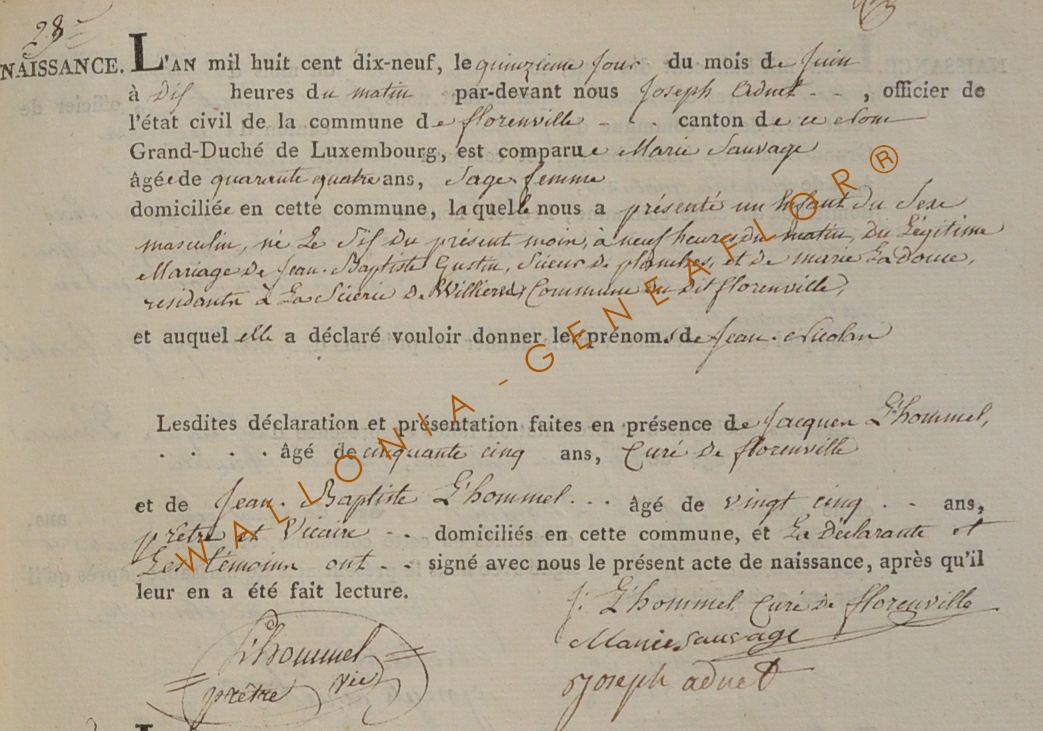 28e
NAISSANCE. L'AN mil huit cent dix-neuf, le quinzieme jour du mois de Juin
à Dix heures du matin par-devant nous Joseph Adnet - - , officier de
l'état civil de la commune de florenville - - . canton de ce Nom
Grand-Duché de Luxembourg, est comparue Marie Sauvage
âgée de quarante quatre ans, Sage-femme
domiciliée en cette commune, laquelle nous a présenté un Enfant du Sexe
masculin, né Le Dix Du présent mois, à neuf heures du matin, du Légitime
Mariage de Jean-Baptiste Gustin, Scieur de planches, et de marie Ladouce,
residants à La Scierie de Williers, Commune du Dit florenville,
et auquel elle a déclaré vouloir donner les prénoms de Jean-Nicolas
Lesdites déclaration et présentation faites en présence de Jacques L'hommel,
. . . . . âgé de cinquante cinq ans, Curé de florenville
et de Jean-Baptiste L'hommel . . . âgé de vingt cinq . . ans,
prêtre et Vicaire - - domiciliés en cette commune, et La Déclarante et
Les témoins ont - - signé avec nous le présent acte de naissance, après qu'il
leur en a été fait lecture.
J. L'hommel Curé de florenville
L'hommel
Marie Sauvage
prêtre vic
Joseph adnet
WALLONIA - GENEAFLOR ®